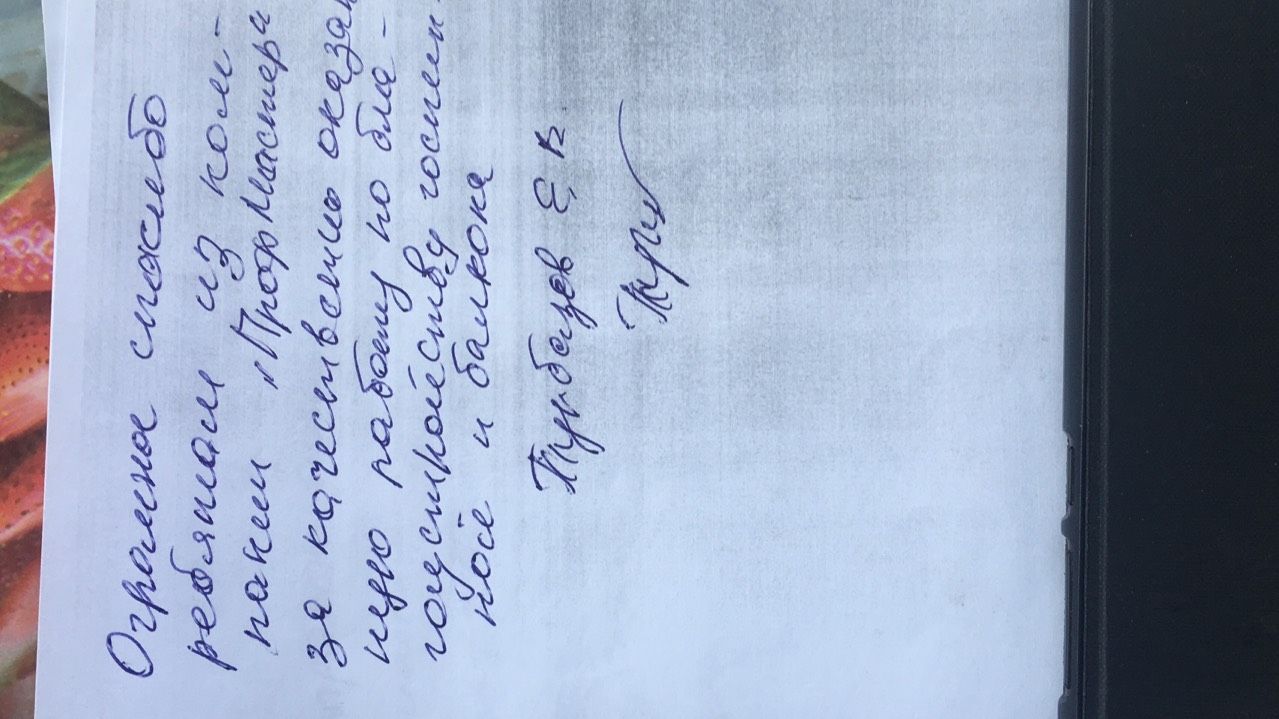 Огромное спасибо
ребятам из ком-
пании „ПрофМастера
за качественно оказан
ную работу по бла-
гоустройству гостин
ной и балкона
Е. В.